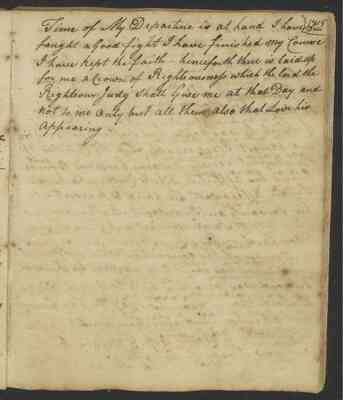 Time of My Departure is at hand I have
fought a Good fight I have finished my Course
I have kept the faith - henceforth there is laid up
for me a Crown of Righteousness which the Lord the
Righteous Judg Shall Give me at that Day and
not to me only but all them also that Love his
Appearing